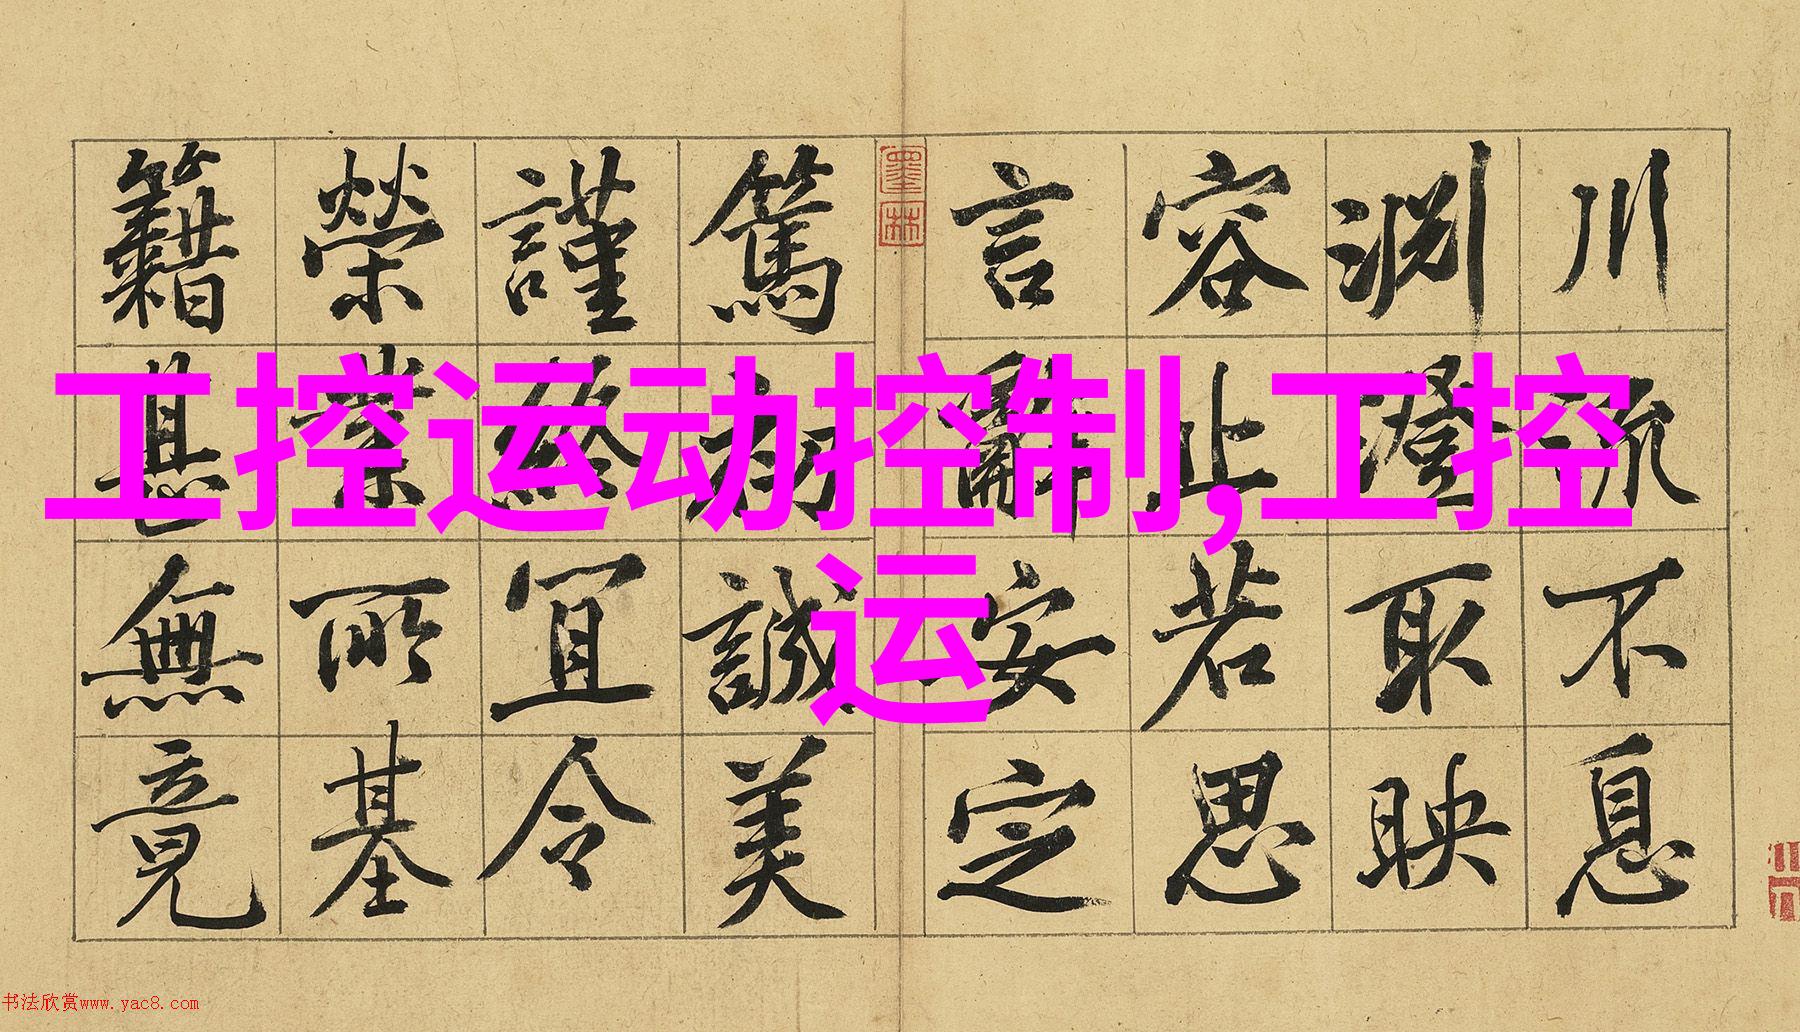 川流不息
淵澄取映
容止若思
言辭安定
墨林
篤初誠美
謹終宜令
榮業所基
籍甚無竟
工控运动控制,工控
运
书法欣赏www.yac8.com